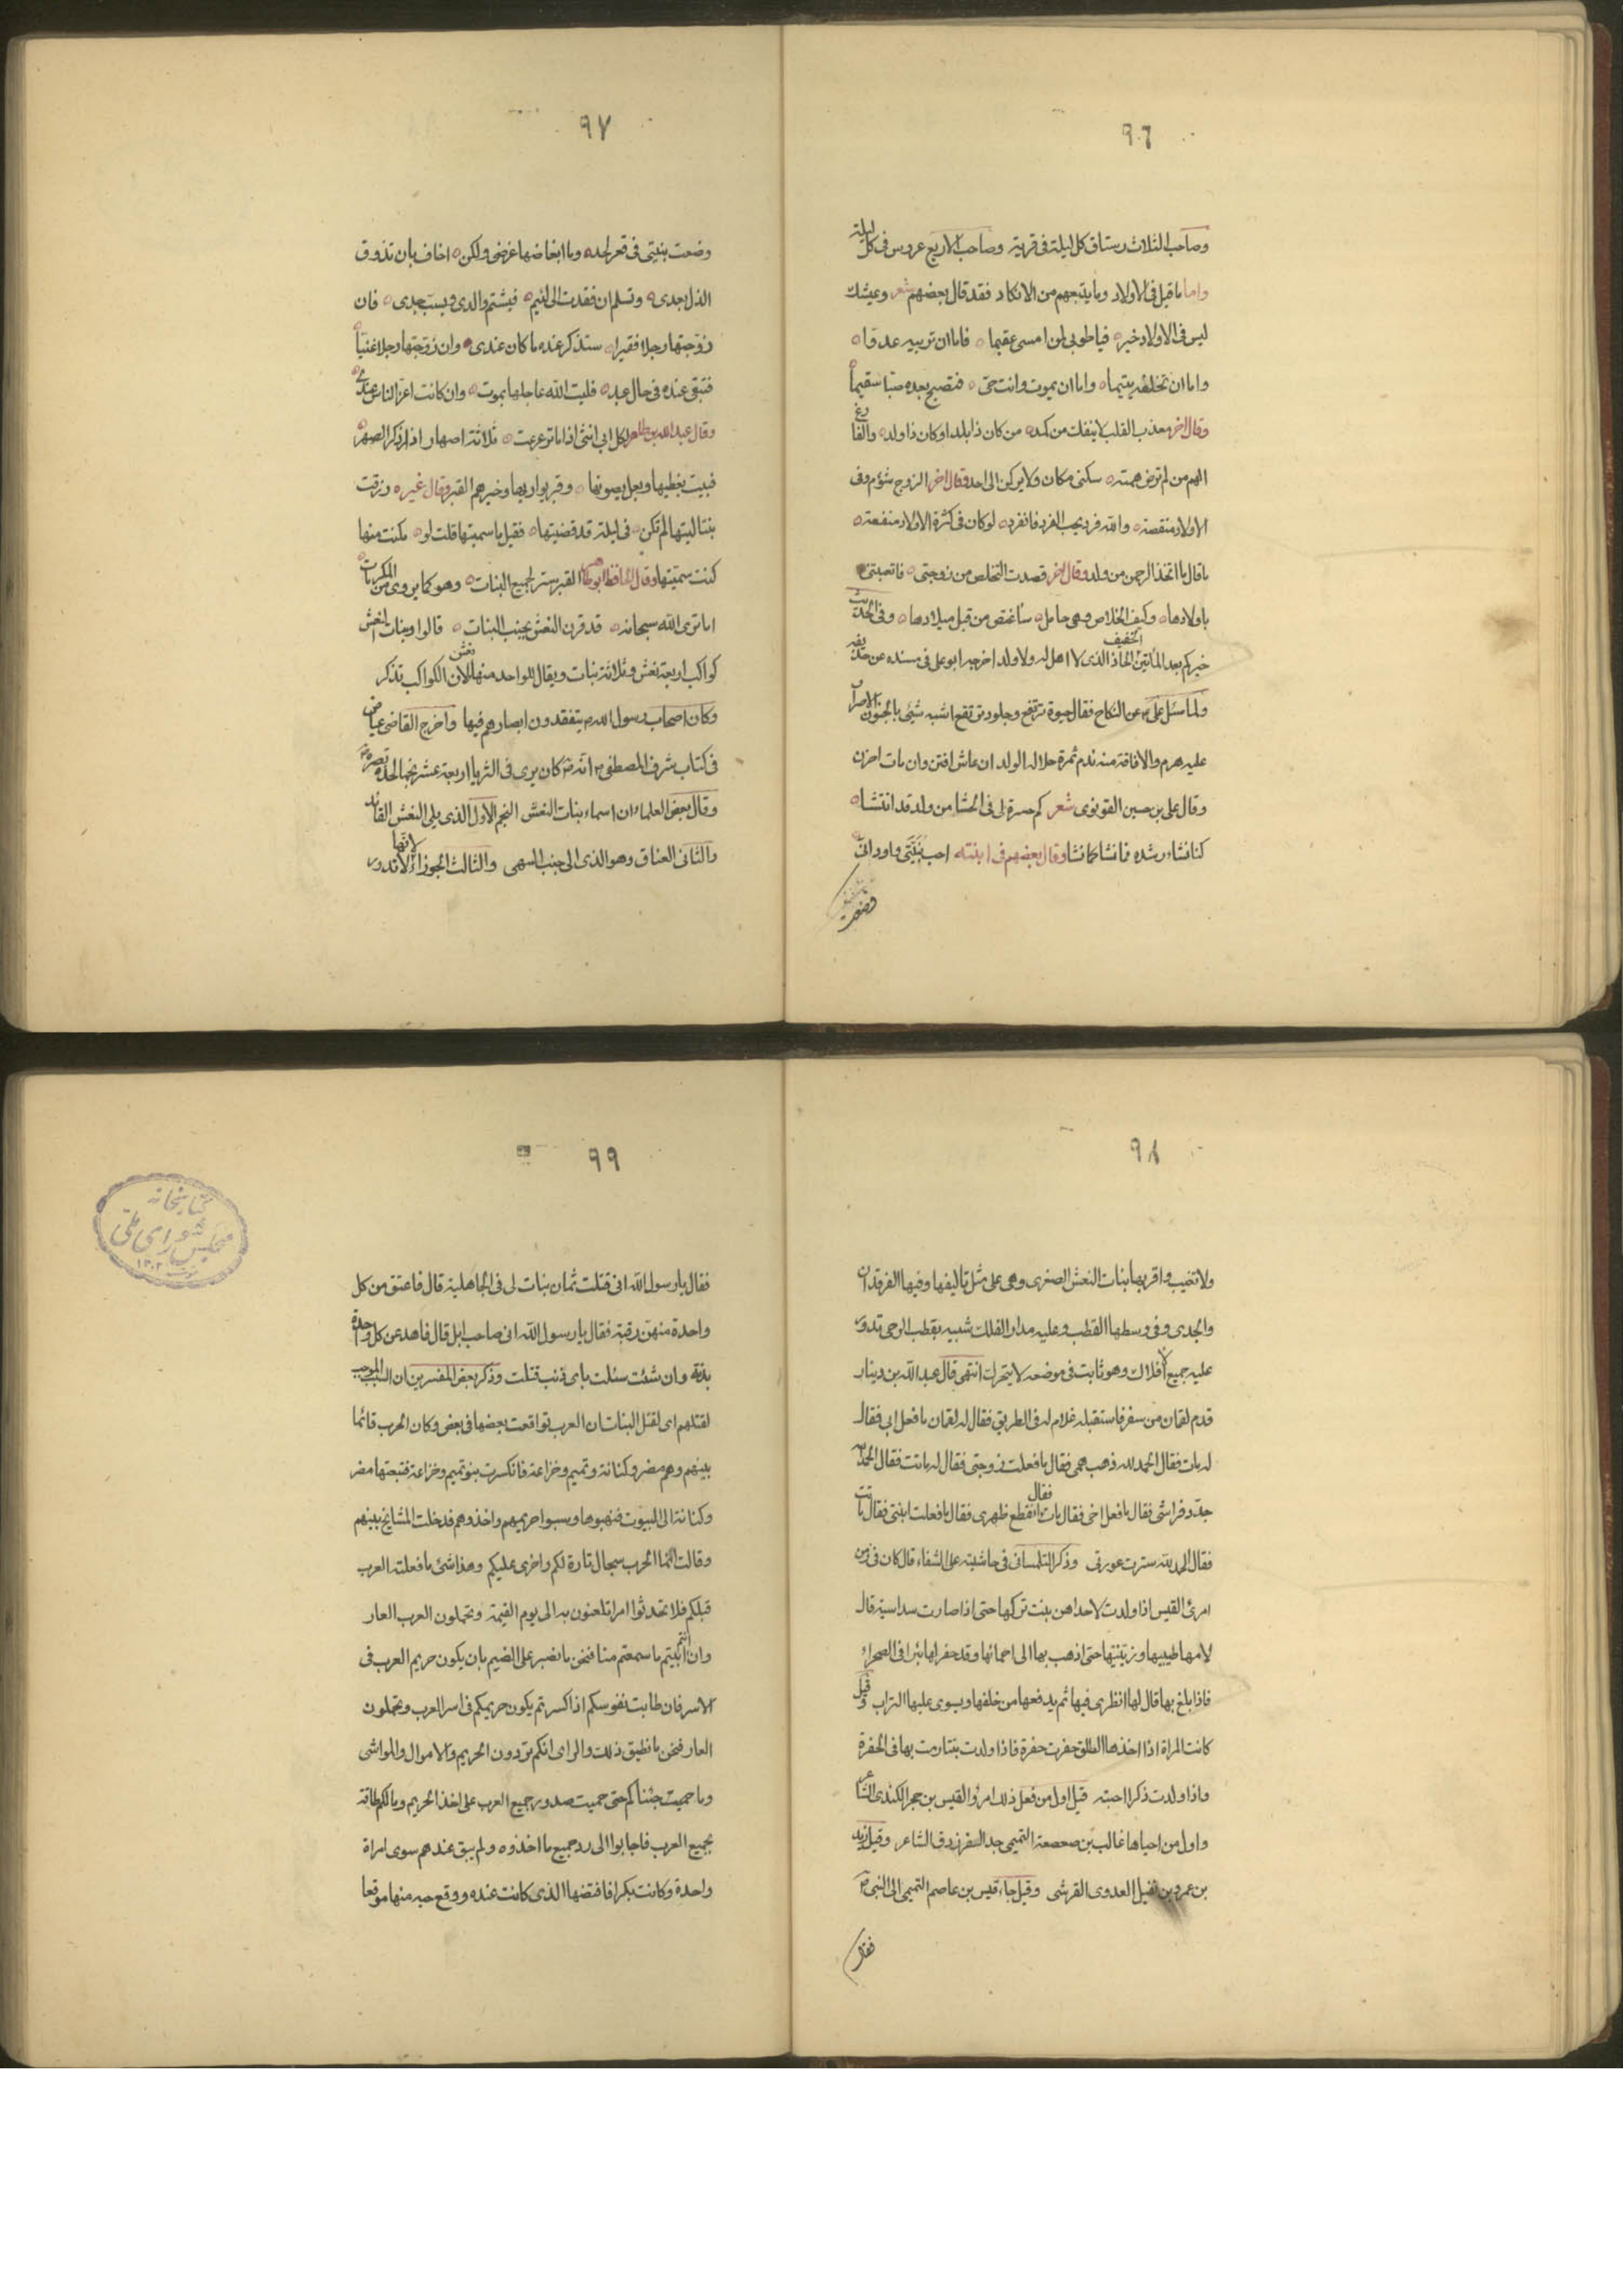 ٩٦
وصاحب الثلاث رستاق كل ليلة فى قرية وصاحب الاربع عروس فى كل ليلة
واما ما قيل فى الاولاد وما يتبعهم من الانكاد فقد قال بعضهم شعر وعيشك
ليس فى الاولاد خير فيا طوبى لمن امسى عقيما فاما ان تربيه عدوا
واما ان تخلفه يتيما واما ان يموت وانت حى فتصبح بعده صبا سقيما
وقال اخر معذب القلب لا ينفك من كمد من كان ذا بلد او كان ذا ولد والفارغ
الهم من لم ترض همته سكنى مكان ولا يركن الى احد وقال اخر الزوج شؤم وفى
الاولاد منقصة والله فرد يحب الفرد فانفرد لو كان فى كثرة الاولاد منفعة
ما قال ما اتخذ الرحمن من ولد وقال اخر قصدت التخلص من زوجتى فاتعبتنى
باولادها وكيف الخلاص وهى حامل ساغتص من قبل ميلادها وفى الحديث
خيركم بعد المأتين الخفيف الحاذ الذى لا اهل له ولا ولد اخرجه ابو على فى مسنده عن حذيفة
ولما سئل على عن النكاح فقال حيوة ترتفع وجلود تقع اشبه شئ بالجنون الاصرار
عليه هرم والافاقة منه ندم ثمرة حلاله الولد ان عاش افتن وان مات احزن
وقال على بن حسين القونوى شعر كم حسرة لى فى الحشا من ولد قد انتشا
كنا نشاء رشده فانشا كما نشا وقال بعضهم فى ابنته احب بنيتى واود انى
وضعت
٩٧
وضعت بنيتى فى قعر لحد وما ابغاضها غرضى ولكن اخاف بان تذوق
الذل بعدى وتسلم ان فقدت الى لئيم فيشتم والدى ويسب جدى فان
زوجتها رجلا فقيرا ستذكر عنده ما كان عندى وان زوجتها رجلا غنيا
فتبقى عنده فى حال عبد فليت الله عاجلها بموت وان كانت اعز الناس عندى
وقال عبد الله بن طاهر لكل ابى انثى اذا ما ترعرعت ثلاثة اصهار اذا ذكر الصهر
فبيت يغطيها وبعل يصونها وقبر يواريها وخيرهم القبر وقال غيره رزقت
بنتا ليتها لم تكن فى ليلة قد قضيتها فقيل ما سميتها قلت لو مكنت منها
كنت سميتها وقال الحافظ القبر ستر لجميع البنات وهو كما يروى من المكرمات
اما ترى الله سبحانه قد قرن النعش بجنب البنات قالوا وبنات النعش
كواكب اربعة نعش وثلاثة بنات ويقال للواحد منها نعش لان الكواكب تذكر
وكان اصحاب رسول الله يتفقدون ابصارهم فيها واخرج القاضى عياض
فى كتاب شرف المصطفى انه كان يرى فى الثريا اربعة عشر نجما لحدة بصره
وقال بعض العلماء ان اسماء بنات النعش النجم الاول الذى يلى النعش القائد
والثانى العناق وهو الذى الى جنب السهى والثالث الجوزاء لانها لا تدور
٩٨
ولا تغيب واقربها بنات النعش الصغرى وهى على مثل تاليفها وفيها الفرقدان
والجدى وفى وسطها القطب وعليه مدار الفلك شبيه بقطب الرحى تدور
عليه جميع الافلاك وهو ثابت فى موضعه لا يتحرك انتهى قال عبد الله بن دينار
قدم لقمان من سفر فاستقبله غلام له فى الطريق فقال له لقمان ما فعل ابى فقال
له مات فقال الحمد لله ذهب همى فقال ما فعلت زوجتى فقال له ماتت فقال الحمد لله
جدد فراشى فقال ما فعل اخى فقال مات فقال انقطع ظهرى فقال ما فعلت ابنتى فقال ماتت
فقال الحمد لله سترت عورتى وذكر التلمسانى فى حاشيته على الشفاء قال كان فى زمن
امرئ القيس اذا ولدت لاحداهن بنت تركها حتى اذا صارت سداسية قال
لامها طيبيها وزينيها حتى اذهب بها الى احمائها وقد حفر لها بئرا فى الصحراء
فاذا بلغ بها قال لها انظرى فيها ثم يدفعها من خلفها ويسوى عليها التراب وقيل
كانت المراة اذا اخذها الطلق حفرت حفرة فاذا ولدت بنتا رمت بها فى الحفرة
واذا ولدت ذكرا احبته قيل اول من فعل ذلك امرؤ القيس بن حجر الكندى الشاعر
واول من احياها غالب بن صعصعة التميمى جد الفرزدق الشاعر وقيل زيد
بن عمرو بن نفيل العدوى القرشى وقيل جاء قيس بن عاصم التميمى الى النبى
فقال
٩٩
فقال يا رسول الله انى قتلت ثمان بنات لى فى الجاهلية قال فاعتق من كل
واحدة منهن رقبة فقال يا رسول الله انى صاحب ابل قال فاهد عن كل واحدة
بدنة وان شئت سئلت باى ذنب قتلت وذكر بعض المفسرين ان السبب الموجب
لقتلهم اى لقتل البنات ان العرب تواقعت بعضها فى بعض وكان الحرب قائما
بينهم وهم مضر وكنانة وتميم وخزاعة فانكسرت بنو تميم وخزاعة فتبعتها مضر
وكنانة الى البيوت فنهبوها وسبوا حريمهم واخذوهم فدخلت المشايخ بينهم
وقالت انما الحرب سجال تارة لكم واخرى عليكم وهذا شئ ما فعلته العرب
قبلكم فلا تحدثوا امرا تلعنون به الى يوم القيمة وتحملون العرب العار
وان انتم ابيتم ما سمعتم منا فنحن ما نصبر على الضيم بان يكون حريم العرب فى
الاسر فان طابت نفوسكم اذا كسرتم يكون حريمكم فى اسر العرب وتحملون
العار فنحن ما نطيق ذلك والراى انكم تردون الحريم والاموال والمواشى
وما حميت جئناكم حتى حميت صدور جميع العرب على اخذ الحريم وما لكم طاقة
بجميع العرب فاجابوا الى رد جميع ما اخذوه ولم يبق عندهم سوى امراة
واحدة وكانت بكرا فافتضها الذى كانت عنده ووقع حبه منها موقعا
كتابخانه
مجلس شوراى ملى